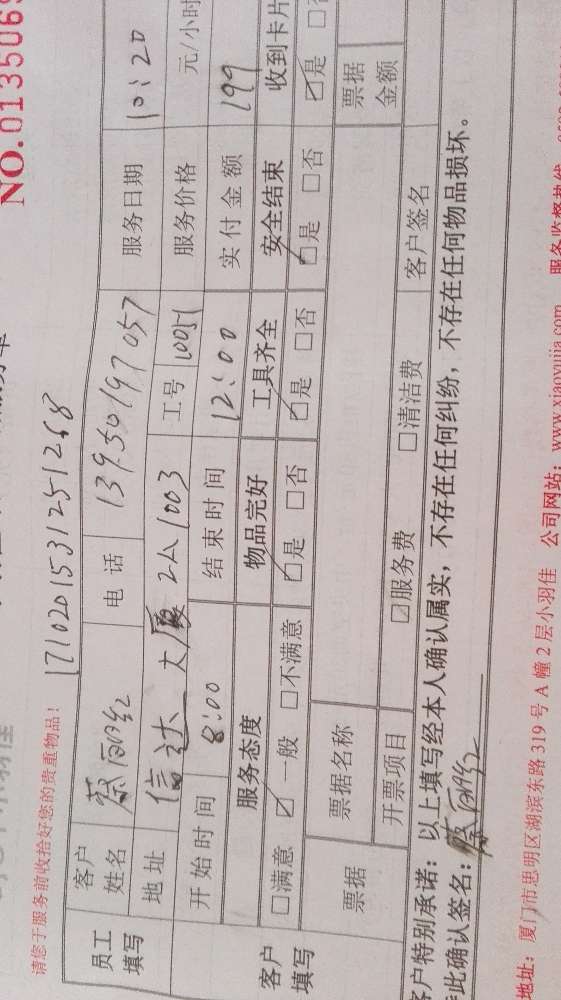 NO.0135069
请您于服务前收拾好您的贵重物品！ 1710201531251268
员工填写 客户姓名 蔡丽红 电话 13950197057 服务日期 10:20
地址 信达大厦2A1003 工号 10051 服务价格 元/小时
客户填写 开始时间 8:00 结束时间 12:00 实付金额 199
服务态度 物品完好 工具齐全 安全结束 收到卡片
□满意 ☑一般 □不满意 ☑是 □否 ☑是 □否 ☑是 □否 ☑是
票据 票据名称 票据金额
开票项目 ☑服务费 □清洁费 客户签名
客户特别承诺：以上填写经本人确认属实，不存在任何纠纷，不存在任何物品损坏。
此确认签名：蔡丽红
地址：厦门市思明区湖滨东路 319 号 A 幢 2 层小羽佳 公司网站：www.xiaoyujia.com 服务监督热线